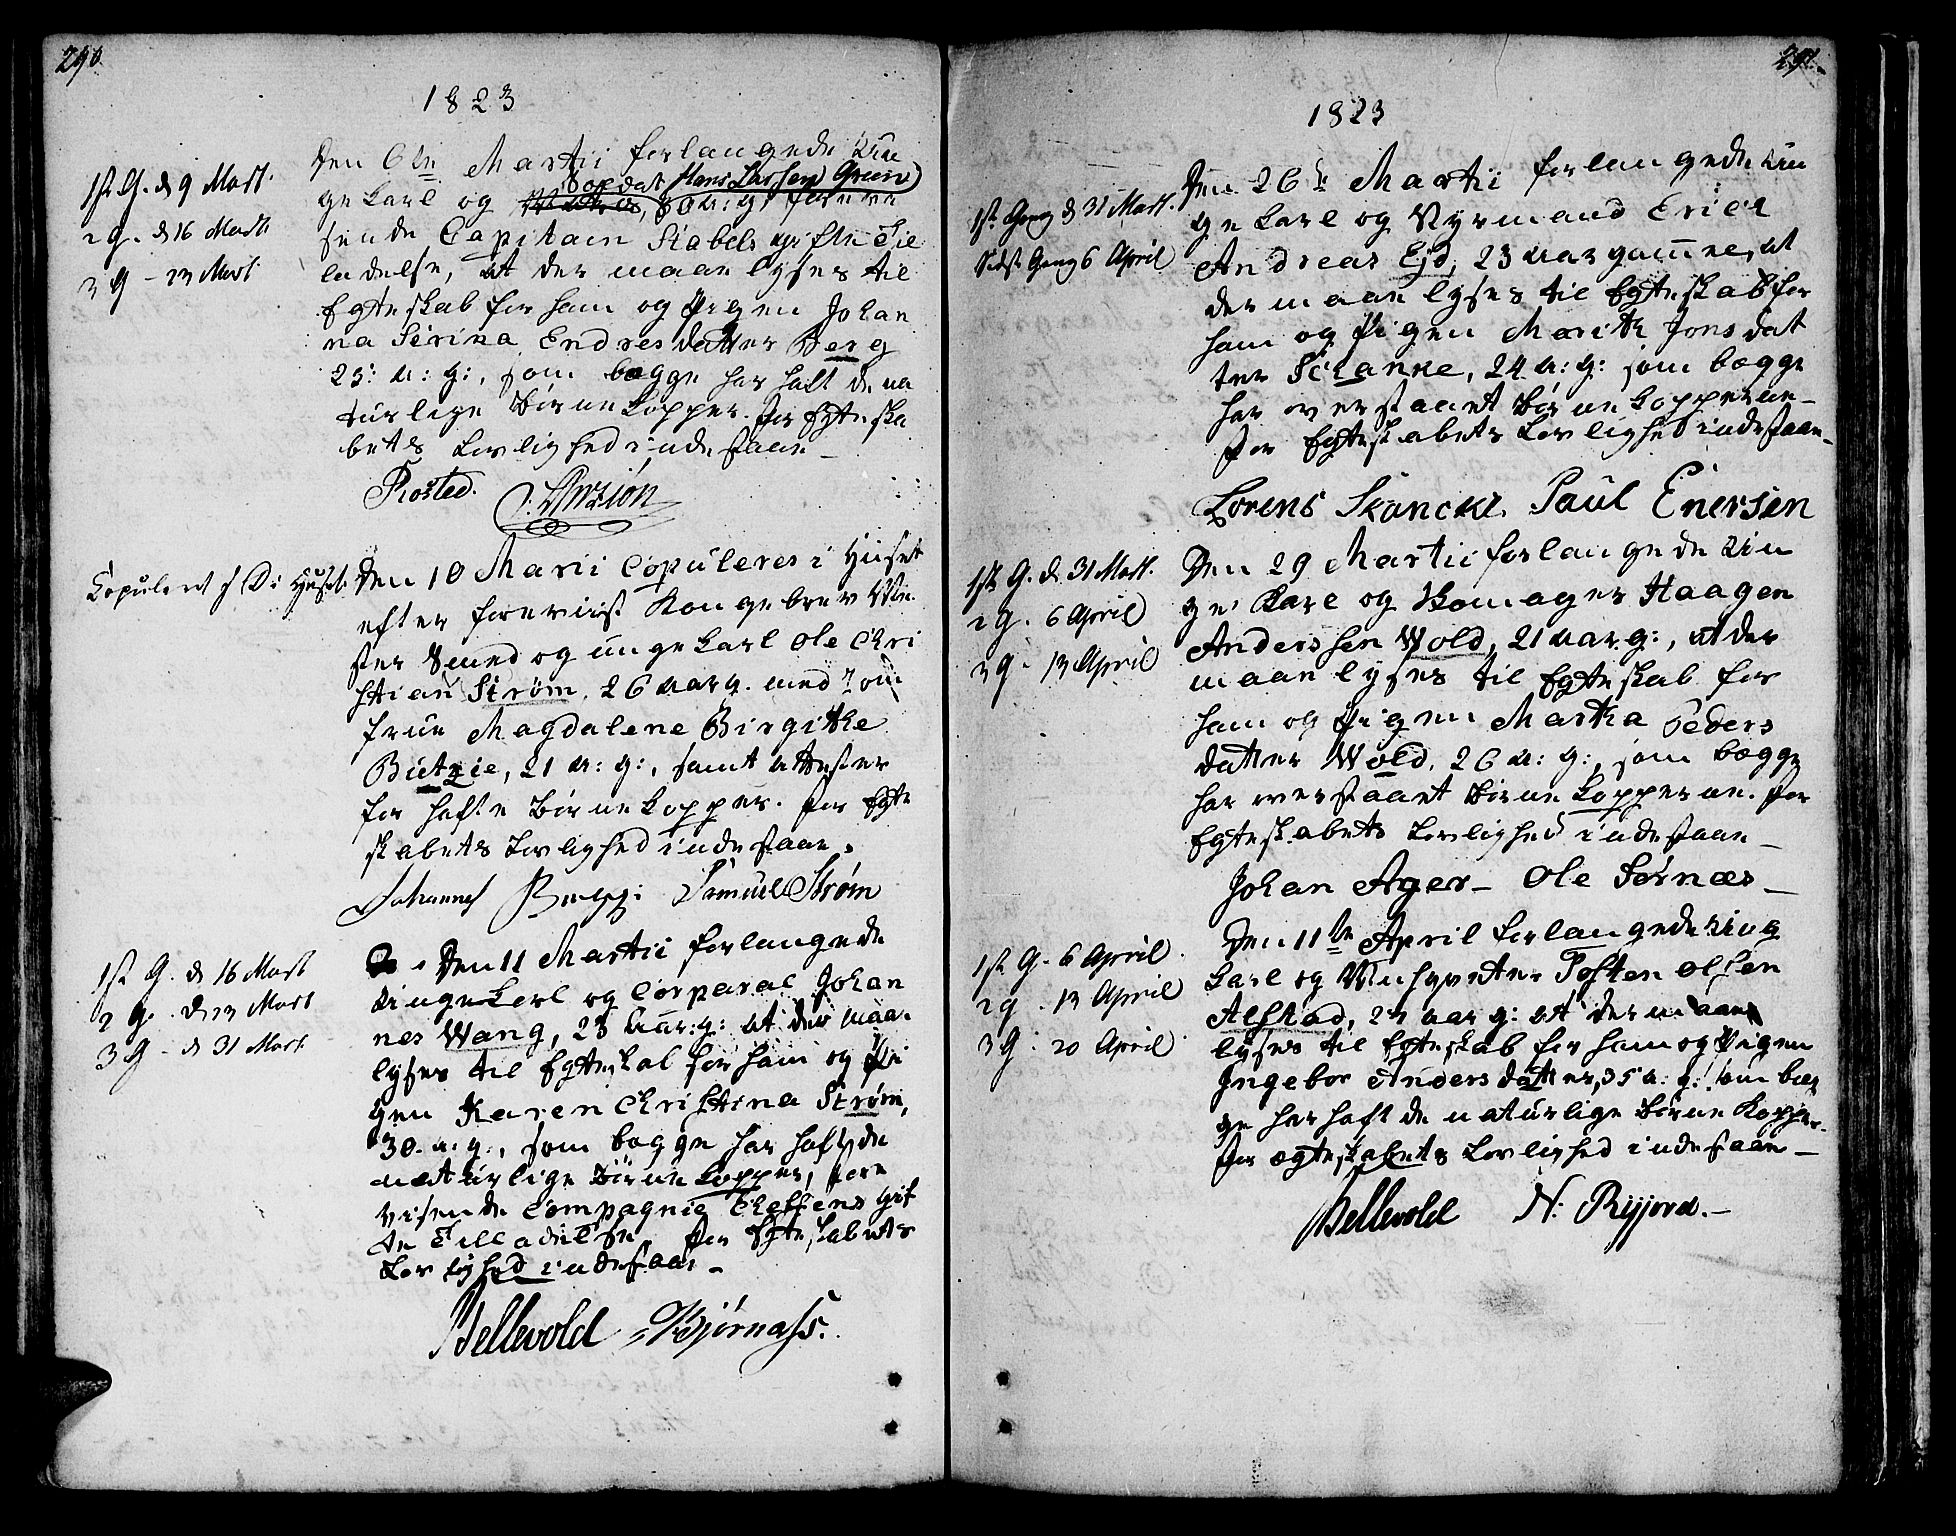 290
1823
1st G. d 9 Mart.
2 G. d 16 Mart.
3 G - 23 Mart.
Den 6te Martii forlangede Un
ge Karl og Soldat Hans Larssen Grün
30 a: g: forevi
sende Capitain Stabels gifte Til
ladelse, at der maae lyses til
Egteskab for ham og Pigen Johan
na Sirina Endresdatter Berg
25: a: g:, som begge har haft de na
turlige Børnekopper. For Egteska
bets Lovlighed indestaae
Rosted.
Copuleret i D: Huset.
Den 10 Martii Copuleres i Huset
efter foreviist Kongebrev Me
ster Smed og unge Karl Ole Chri
stian Strøm, 26 aar g. med Jom
frue Magdalene Birgithe
Butzie, 21 a: g:, samt attester
for hafte Børnekopper. For Egte
skabets Lovlighed indestaae.
Johannes Samuel Strøm
1st G. d 16 Mart
2 G. d 23 Mart
3 G - d 31 Mart.
Den 11 Martii forlangede
Ungekarl og Corporal Johan
nes Wang, 28 Aar: g: at der maa
lyses til Egteskab for ham og Pi
gen Karen Christina Strøm,
30. a: g:, som begge har haft de
naturlige Børnekopper, fore
visende Compagnie Cheffens gif
te Tilladelse. For Egteskabets
Lovlighed indestaae
Bellevold Bjørnass.
291.
1823
1st Gang d 31 Mart.
Sidst Gang 6 April
Den 26de Martii forlangede Un
ge Karl og Styrmand Erich
Andreas Eid, 23 aar gammel, at
der maae lyses til Egteskab for
ham og Pigen Marith Jonsdat
ter Schanke, 24 a: g: som begge
har overstaaet Børnekopperne
For Egteskabets Lovlighed indestaae
Lorens Skancke. Paul Enersen
1ste G. d. 31 Mart.
2 G. 6 April
3 G - 13 April
Den 29 Martii forlangede Un
ge Karl og Skomager Haagen
Anderssen Wold, 21 aar. g:, at der
maae lyses til Egteskab for
ham og Pigen Martha Peders
datter Wold, 26 a: g:, som begge
har overstaaet Børnekopperne. For
Egteskabets Lovlighed indestaae
Johan Ager - Ole Sørnæs
1st G. 6 April
2 G. 13 April
3 G. 20 April
Den 11te April forlangede Ung
Karl og Musqveteer Tosten Olsen
Alstad, 27 aar g: at der maae
lyses til Egteskab for ham og Pigen
Ingebor Andersdatter, 35 a: g: som beg
ge har haft de naturlige Børnekopper.
For ægteskabets Lovlighed indestaae
Bellevold N: